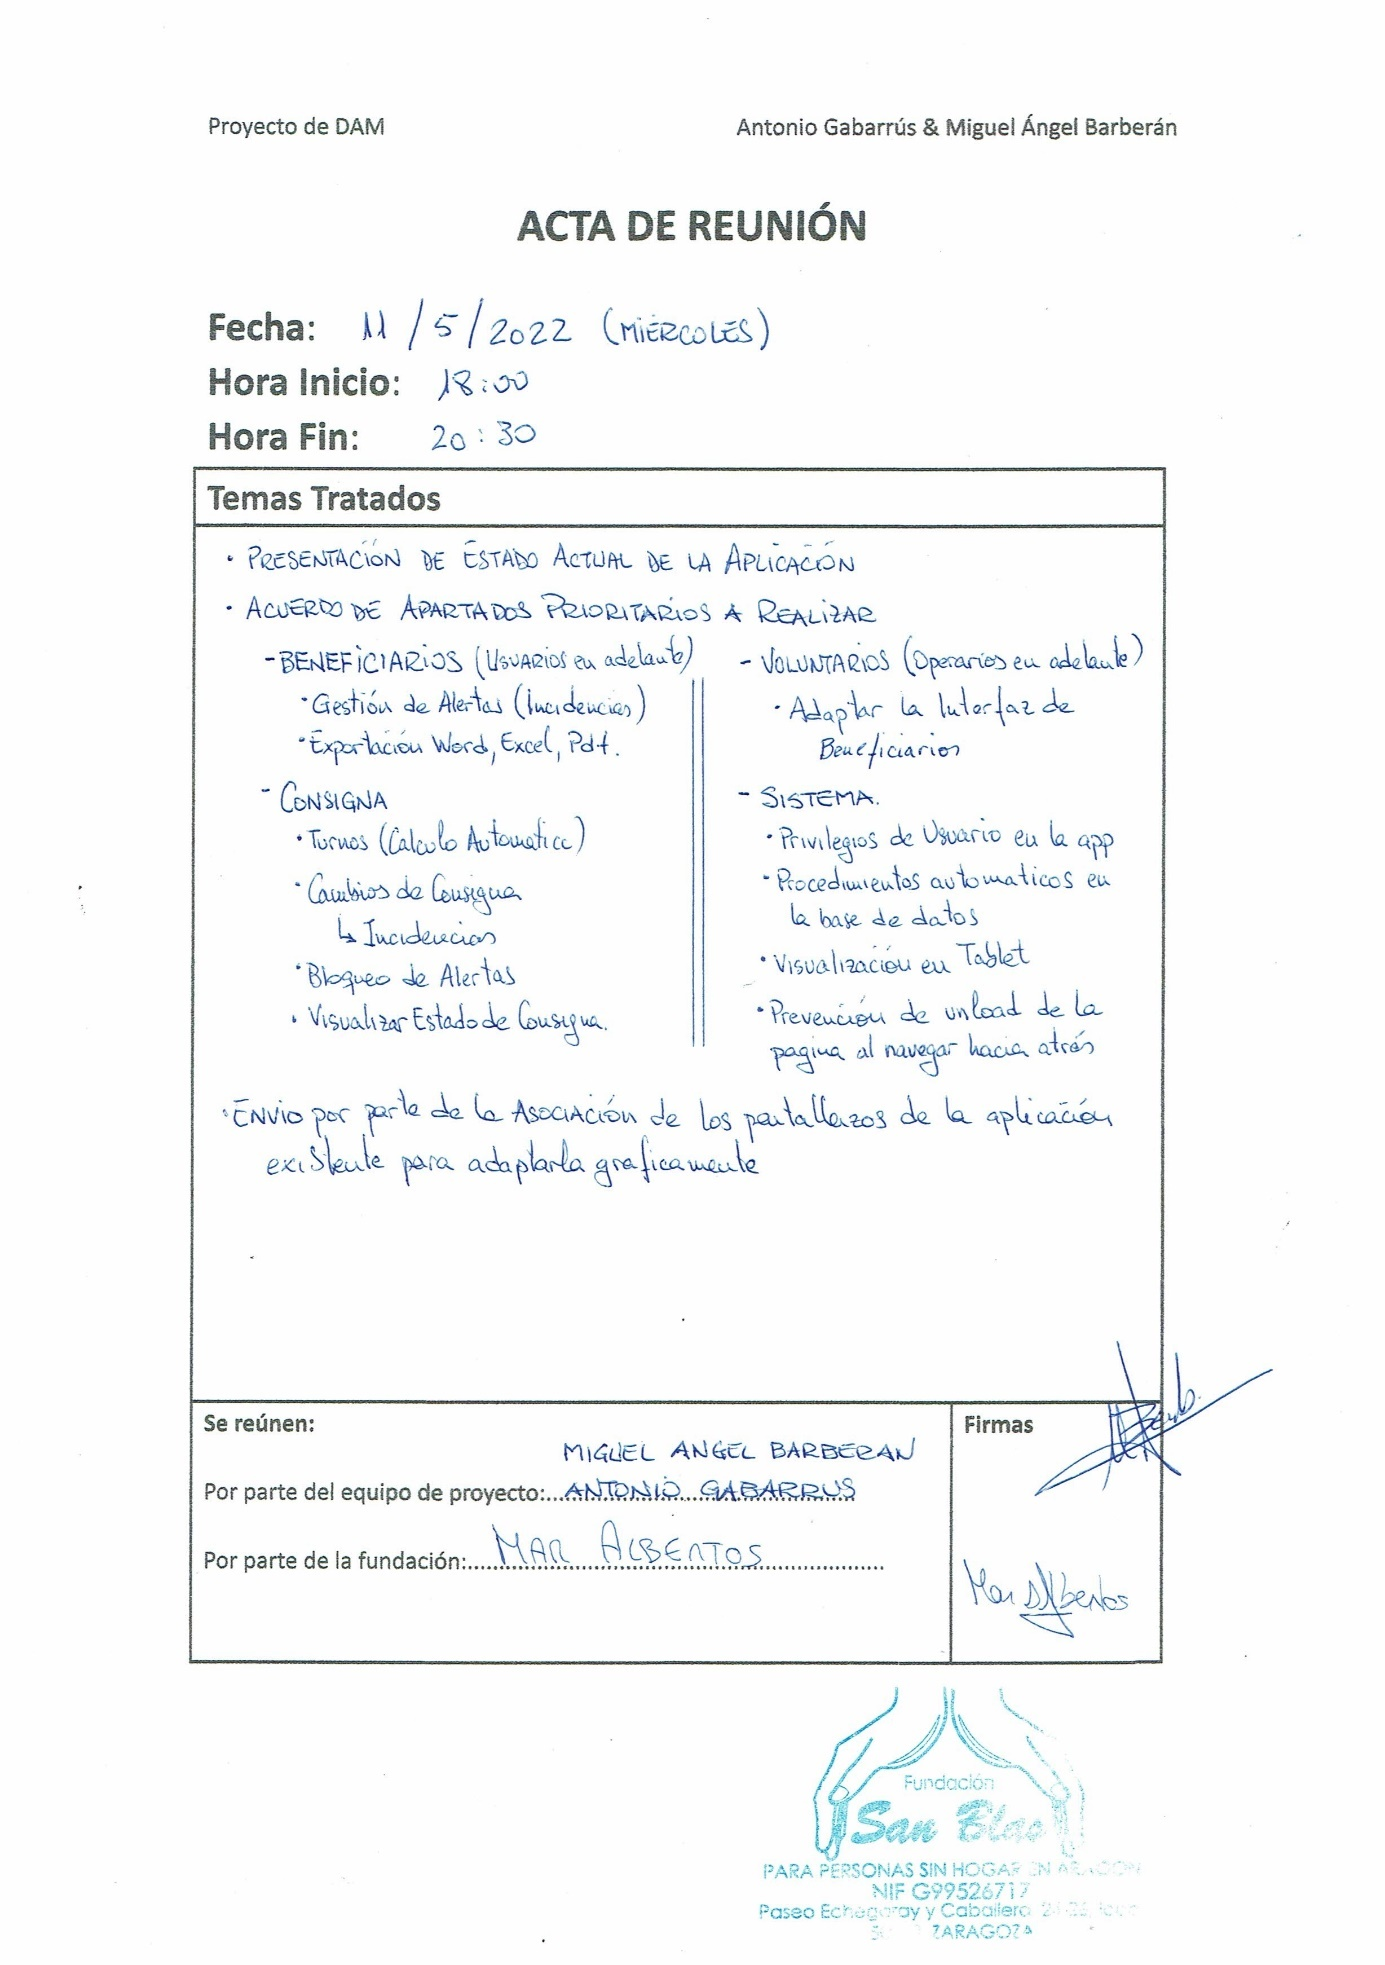 Proyecto de DAM
Antonio Gabarrús & Miguel Ángel Barberán
ACTA DE REUNIÓN
Fecha: 11/5/2022 (MIÉRCOLES)
Hora Inicio: 18:00
Hora Fin: 20:30
Temas Tratados
· PRESENTACIÓN DE ESTADO ACTUAL DE LA APLICACIÓN
· ACUERDO DE APARTADOS PRIORITARIOS A REALIZAR
- BENEFICIARIOS (Usuarios en adelante)
· Gestión de Alertas (Incidencias)
· Exportación Word, Excel, Pdf.
- CONSIGNA
· Turnos (Calculo Automatico)
· Cambios de Consigna
↳ Incidencias
· Bloqueo de Alertas
· Visualizar Estado de Consigna.
- VOLUNTARIOS (Operarios en adelante)
· Adaptar la Interfaz de
Beneficiarios
- SISTEMA.
· Privilegios de Usuario en la app
· Procedimientos automaticos en
la base de datos
· Visualización en Tablet
· Prevención de unload de la
pagina al navegar hacia atrás
· ENVIO por parte de la ASOCIACIÓN de los pantallazos de la aplicación
existente para adaptarla graficamente
Se reúnen:
MIGUEL ANGEL BARBERAN
Por parte del equipo de proyecto:...ANTONIO GABARRUS
Por parte de la fundación:.....MAR ALBERTOS
Firmas
Mar Albertos
Fundación
San Blas
PARA PERSONAS SIN HOGAR EN ARAGON
NIF G99526717
Paseo Echegaray y Caballero
ZARAGOZA